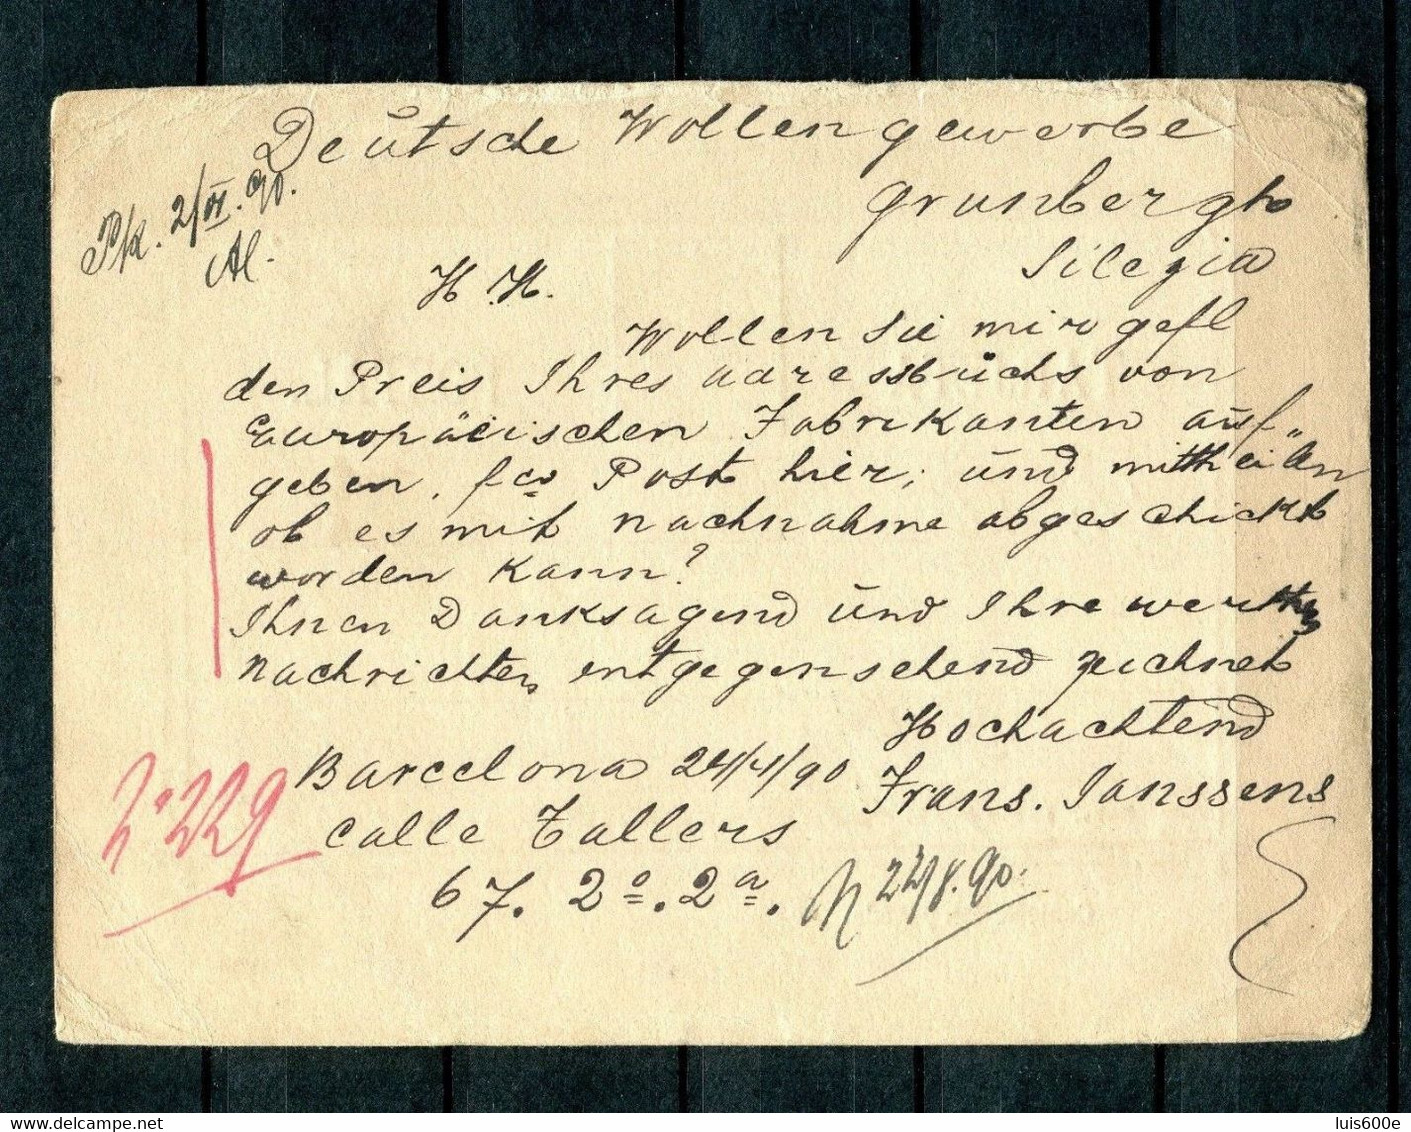 Deutsche Wollengewerbe
Grunbergh
Silegia
Pk. 2/VI. 90.
Al.
H. H.
Wollen Sie mir gefl
den Preis Ihres adressbüchs von
Europäeischen Fabrikanten aüf„
geben, fco Post hier; ünd mittheilen
ob es mit nachnahme abgeschickt
worden kann?
Ihnen Danksagend ünd Ihre werthe
nachrichten entgegensehend zeichnet
Hochachtend
Frans. Janssens
Barcelona 24/4/90
calle Tallers
67. 2º. 2ª.
229
90.
www.delcampe.net
luis600e